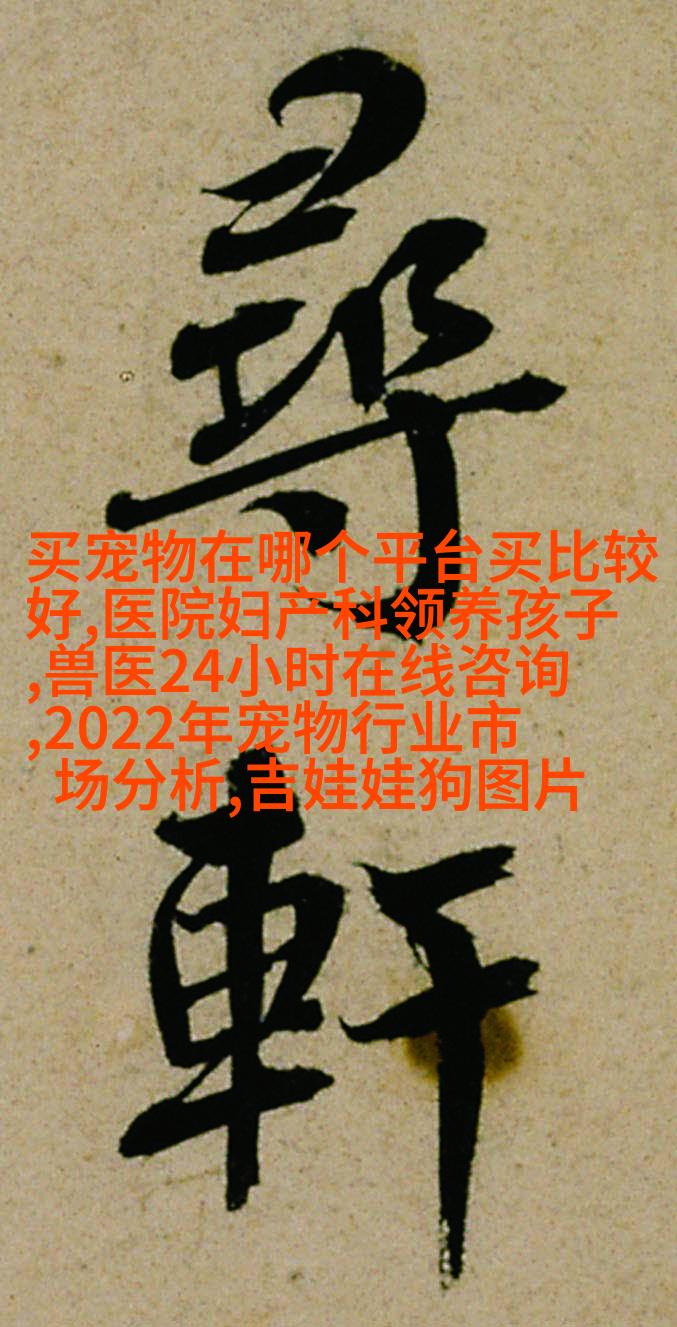 尋
軒
买宠物在哪个平台买比较
好,医院妇产科领养孩子
,兽医24小时在线咨询
,2022年宠物行业市
场分析,吉娃娃狗图片